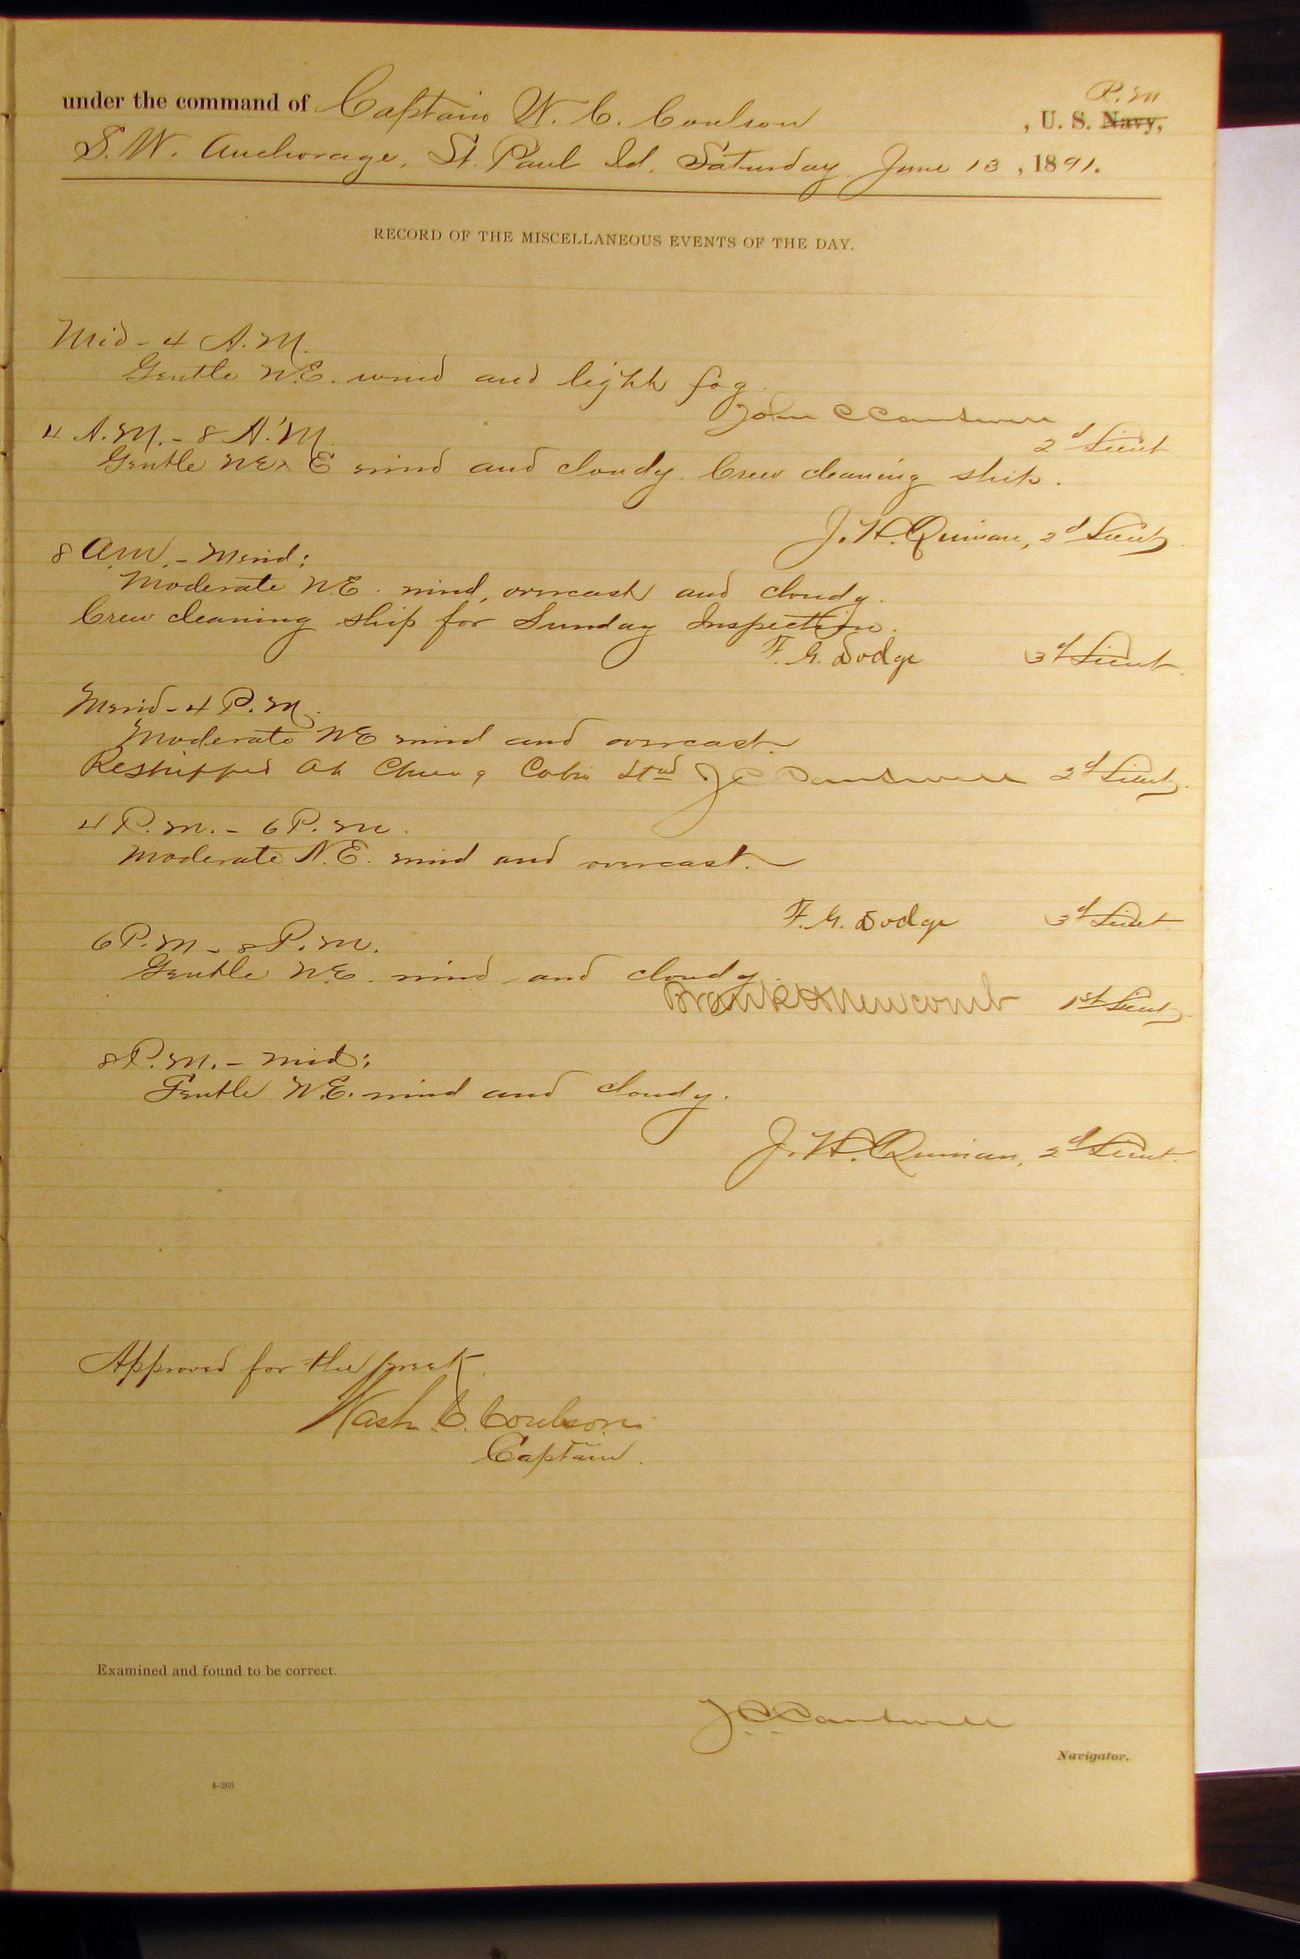 R. M
under the command of Captain W. C. Coulson , U. S. Navy,
S. W. Anchorage, St. Paul Id. Saturday June 13 , 1891.
RECORD OF THE MISCELLANEOUS EVENTS OF THE DAY.
Mid - 4 A.M.
Gentle N.E. wind and light fog.
John C Cantwell
2d Lieut
4 A.M. - 8 A.M.
Gentle NExE wind and cloudy. Crew cleaning ship.
J. H. Quinan, 2d Lieut
8 A.M. - Merid:
Moderate N.E. wind, overcast and cloudy.
Crew cleaning ship for Sunday Inspection.
F. G. Dodge 3d Lieut.
Merid - 4 P.M.
Moderate NE wind and overcast.
Reshipped Ah Chung Cabin Std J C Cantwell 2d Lieut.
4 P.M. - 6 P.M.
Moderate N.E. wind and overcast.
F. G. Dodge 3d Lieut.
6 P.M - 8 P.M.
Gentle N.E. wind and cloudy.
Frank H Newcomb 1st Lieut
8 P.M. - Mid:
Gentle N.E. wind and cloudy.
J. H. Quinan, 2d Lieut.
Approved for the week.
Wash. C. Coulson
Captain.
Examined and found to be correct.
J C Cantwell
Navigator.
4-265